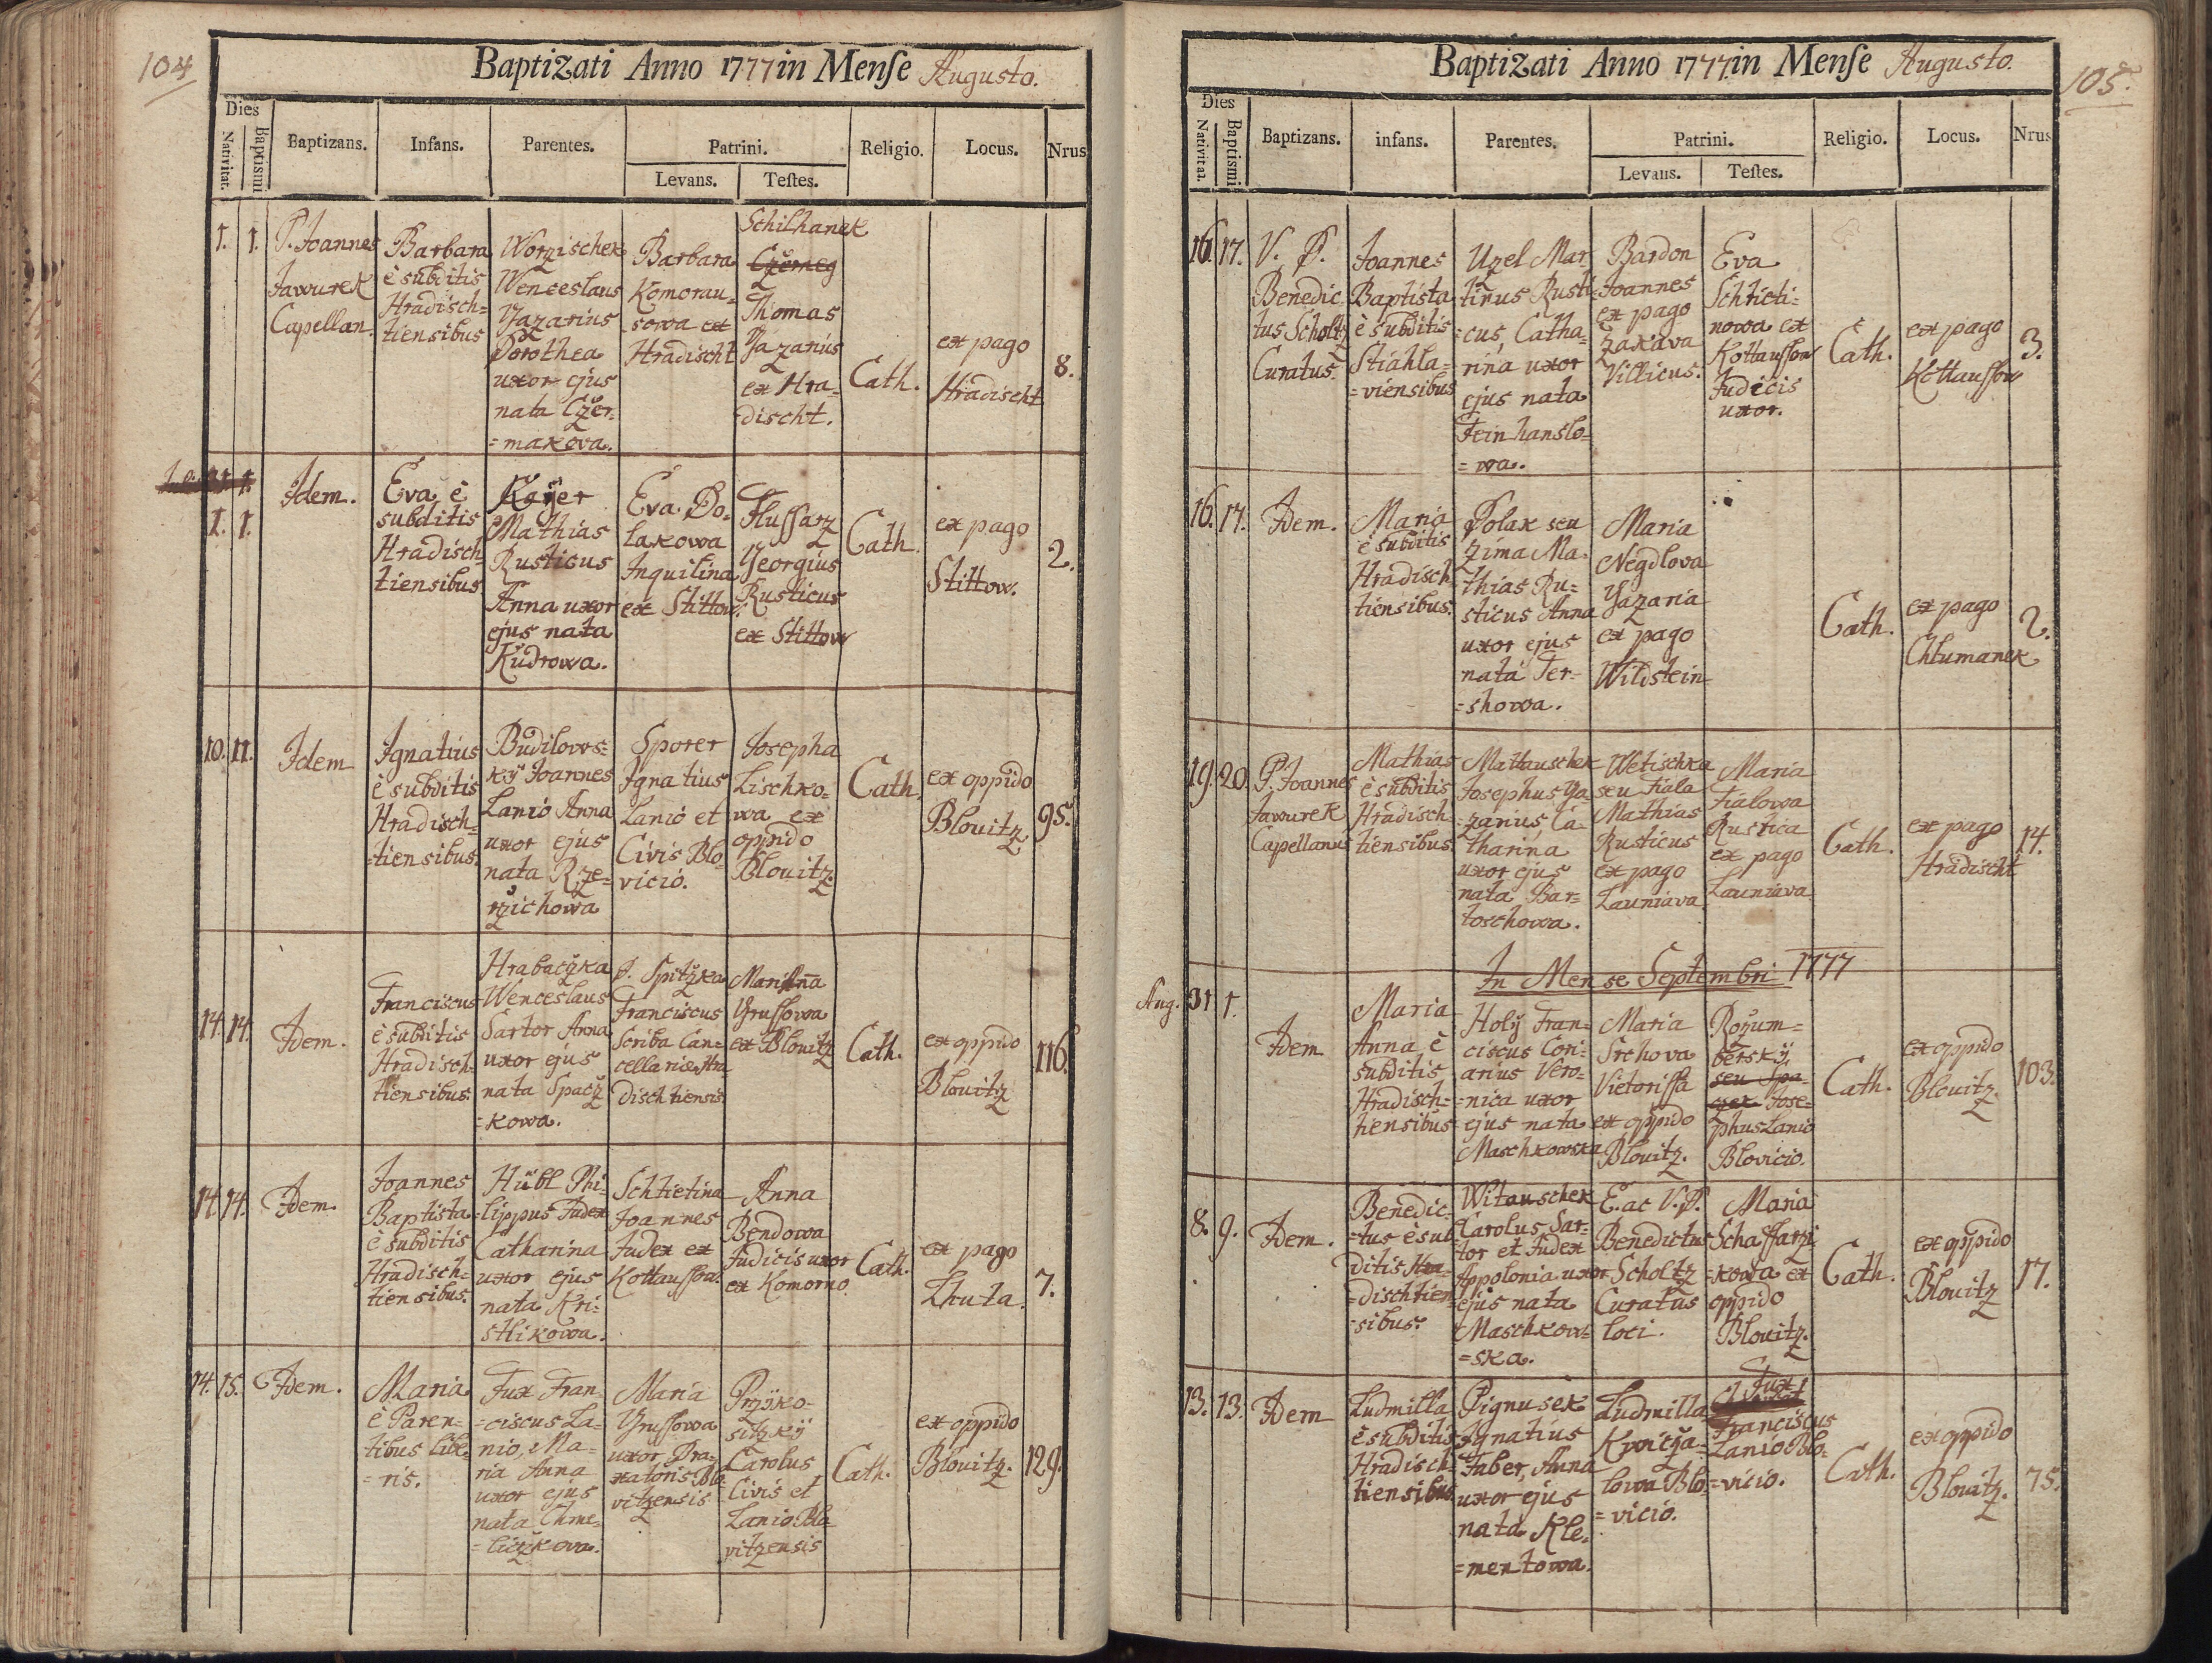 104
Baptizati Anno 1777 in Mense Augusto.
Dies
Nativitat.
Baptismi
Baptizans.
Infans.
Parentes.
Patrini.
Levans.
Testes.
Religio.
Locus.
Nrus
1.
1.
P. Joannes
Jawurek
Capellan.
Barbara
è subditis
Hradisch=
tiensibus
Worzischek
Wenceslaus
Gazarius
Dorothea
uxor ejus
nata Czer=
=makova.
Barbara
Komorau=
sowa ex
Hradischt
Schilhanek
Thomas
Gazarius
ex Hra=
discht.
Cath.
ex pago
Hradischt
8.
1.
1.
Idem.
Eva è
subditis
Hradisch
tiensibus
Kayer
Mathias
Rusticus
Anna uxor
ejus nata
Kudrowa.
Eva Po=
lakowa
Inquilina
ex Stittow.
Flussarz
Georgius
Rusticus
ex Stittow
Cath.
ex pago
Stittow.
2.
10.
11.
Idem
Ignatius
è subditis
Hradisch=
=tiensibus.
Budilows=
ky Joannes
Lanio Anna
uxor ejus
nata Rze=
rzichowa
Sporer
Ignatius
Lanio et
Civis Blo=
vicio.
Josepha
Lischko=
wa ex
oppido
Blouitz.
Cath.
ex oppido
Blouitz
95.
14.
14.
Idem.
Franciscus
è subditis
Hradisch=
tiensibus.
Hrabaczka
Wenceslaus
Sartor Anna
uxor ejus
nata Spacz
=kowa.
P. Spitzka
Franciscus
Scriba Can=
cellariae Hra
dischtiensis
Marianna
Grussowa
ex Blouitz
Cath.
ex oppido
Blouitz
116.
14.
14.
Idem.
Joannes
Baptista
è subditis
Hradisch=
tiensibus.
Hübl Phi=
lippus Judex
Catharina
uxor ejus
nata Kri=
stlikowa.
Schtietina
Joannes
Judex ex
Kottaussow.
Anna
Bendowa
Judicis uxor
ex Komorno.
Cath.
ex pago
Lhuta.
7.
14.
15.
Idem.
Maria
è Paren=
tibus libe=
=ris.
Fux Fran
=ciscus La=
nio, Ma=
ria Anna
uxor ejus
nata Chme=
=liczkova.
Maria
Grussowa
uxor Bra=
xatoris Blo
vitzensis
Przyko=
sitzky
Carolus
Civis et
Lanio Blo
vitzensis
Cath.
ex oppido
Blouitz.
129.
105.
Baptizati Anno 1777 in Mense Augusto.
Dies
Nativitat.
Baptismi
Baptizans.
infans.
Parentes.
Patrini.
Levans.
Testes.
Religio.
Locus.
Nrus
16.
17.
V. P.
Benedic=
tus Scholtz
Curatus.
Joannes
Baptista
è subditis
Stiahla=
=viensibus
Uzel Mar
tinus Rusti
=cus, Catha=
rina uxor
ejus nata
Feinhanslo=
=wa.
Bardon
Joannes
ex pago
Zakava
Villicus.
Eva
Schtieti=
nowa ex
Kottaussow
Judicis
uxor.
Cath.
ex pago
Kottaussow
3.
16.
17.
Idem.
Maria
è subditis
Hradisch
tiensibus.
Polak seu
Zima Ma=
thias Ru=
sticus Anna
uxor ejus
nata Ter=
=showa.
Maria
Negdlova
Gazaria
ex pago
Wildstein
Cath.
ex pago
Chlumanek
2.
19.
20.
P. Joannes
Jawurek
Capellanus
Mathias
è subditis
Hradisch
tiensibus.
Mattauschek
Josephus Ga=
zarius, Ca=
tharina
uxor ejus
nata Bar=
toschowa.
Wetischka
seu Fiala
Mathias
Rusticus
ex pago
Launiava
Maria
Fialowa
Rustica
ex pago
Launiava
Cath.
ex pago
Hradischt
14.
In Mense Septembri 1777
Aug. 31
1.
Idem
Maria
Anna è
subditis
Hradisch=
tiensibus
Holy Fran=
ciscus Cori=
arius Vero=
=nica uxor
ejus nata
Maschkowska
Maria
Srchova
Vietorissa
ex oppido
Blouitz.
Rozum=
bersky
seu Spa=
czek Jose=
phus Lanio
Blovicio.
Cath.
ex oppido
Blouitz.
103.
8.
9.
Idem.
Benedic=
=tus è sub
ditis Hra=
=dischtien
=sibus.
Witauschek
Carolus Sar=
tor et Judex
Appolonia uxor
ejus nata
Maschkow=
=ska.
E. ac V. P.
Benedictus
Scholtz
Curatus
loci.
Maria
Schaffarzi
=kowa ex
oppido
Blouitz.
Cath.
ex oppido
Blouitz
17.
13.
13.
Idem
Ludmilla
è subditis
Hradisch=
tiensibus
Pignusek
Ignatius
Faber, Anna
uxor ejus
nata Kle=
=mentowa.
Ludmilla
Kwicza=
lowa Blo=
=vicio.
Fux
Franciscus
Lanio Blo=
=vicio.
Cath.
ex oppido
Blouitz.
75.